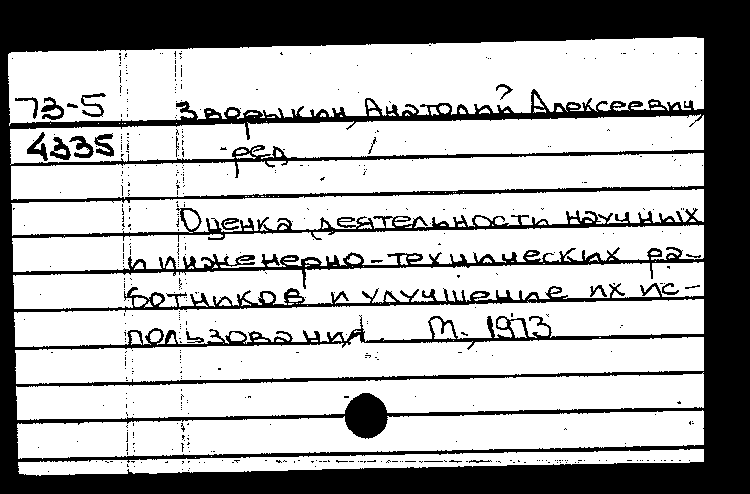 73-5 Зворыкин, Анатолий Алексеевич,
4335 ред.
Оценка деятельности научных
и инженерно-технических ра-
ботников и улучшение их ис-
пользования. М., 1973